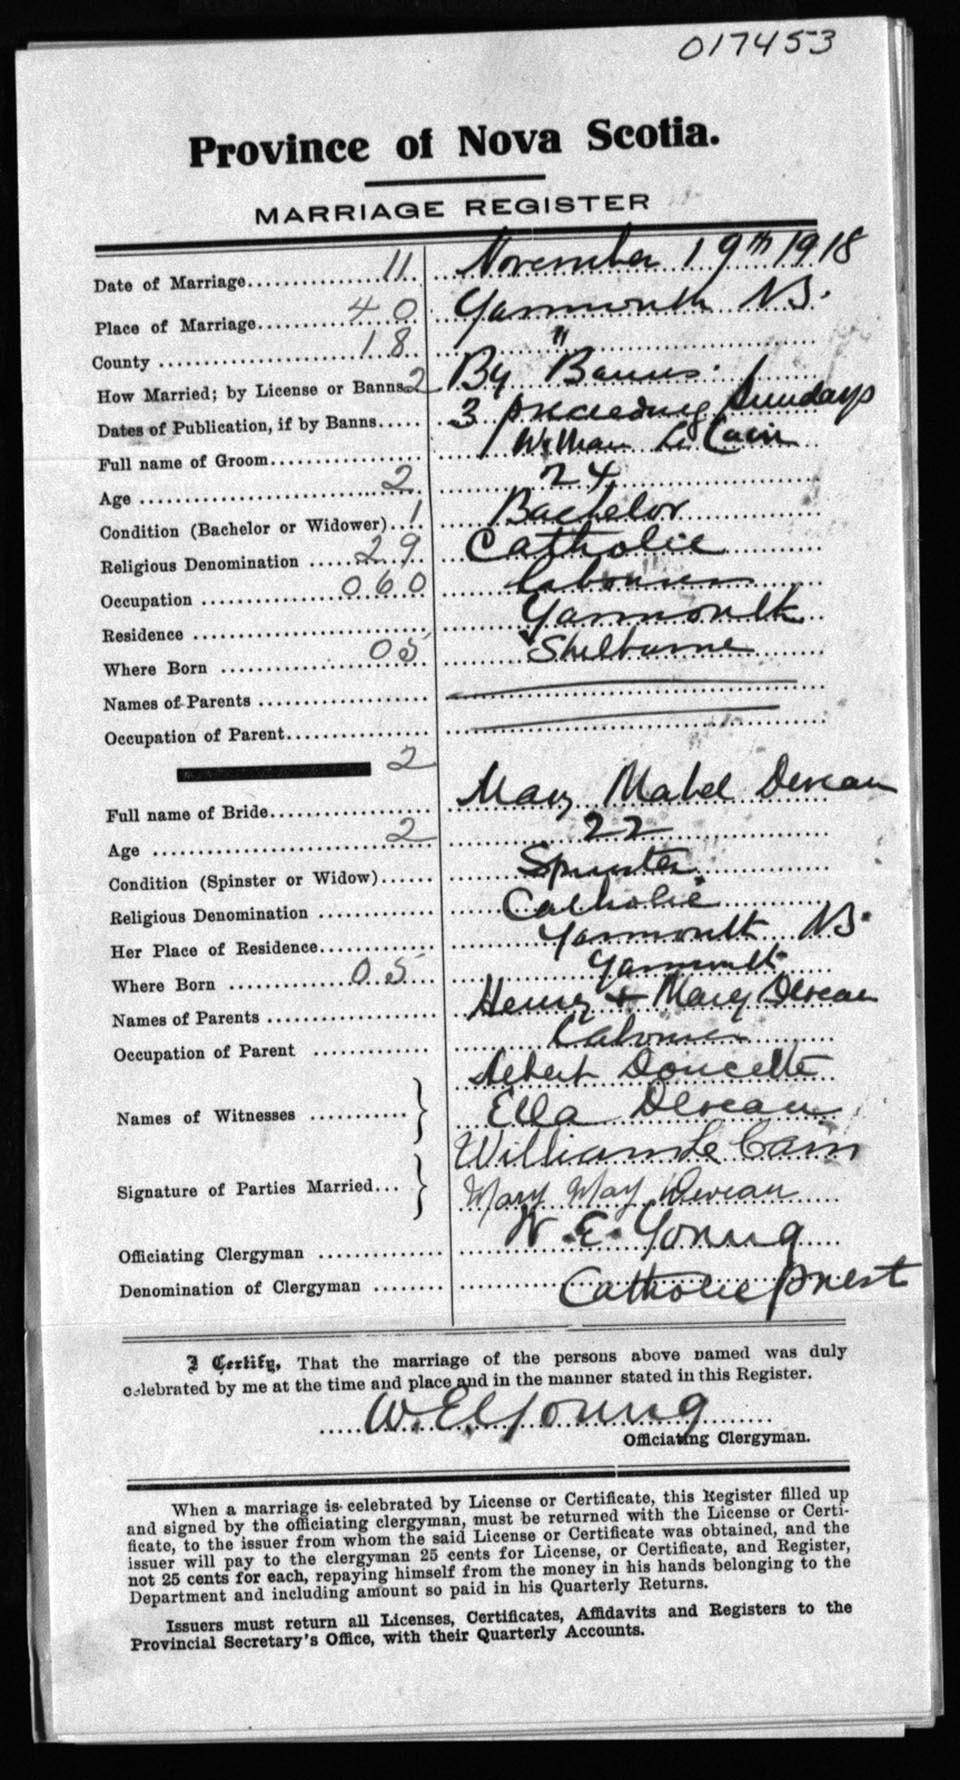 017453
Province of Nova Scotia.
MARRIAGE REGISTER
Date of Marriage 11 November 19th 1918
Place of Marriage 40 Yarmouth N.S.
County 18 "
How Married; by License or Banns 2 By Banns.
Dates of Publication, if by Banns 3 preceeding Sundays
Full name of Groom William Le Cain
Age 2 24
Condition (Bachelor or Widower) 1 Bachelor
Religious Denomination 29 Catholic
Occupation 060 Labourer
Residence Yarmouth
Where Born 05 Shelburne
Names of Parents
Occupation of Parent
2
Full name of Bride Mary Mabel Deveau
Age 2 22
Condition (Spinster or Widow) Spinster
Religious Denomination Catholic
Her Place of Residence Yarmouth N.S.
Where Born 05 Yarmouth
Names of Parents Henry + Mary Deveau
Occupation of Parent Labourer
Names of Witnesses } Albert Doucette
Ella Deveau
Signature of Parties Married } William Le Cain
Mary May Deveau
Officiating Clergyman W. E. Young
Denomination of Clergyman Catholic Priest
I Certify, That the marriage of the persons above named was duly
celebrated by me at the time and place and in the manner stated in this Register.
W. E. Young
Officiating Clergyman.
When a marriage is celebrated by License or Certificate, this Register filled up
and signed by the officiating clergyman, must be returned with the License or Certi-
ficate, to the issuer from whom the said License or Certificate was obtained, and the
issuer will pay to the clergyman 25 cents for License, or Certificate, and Register,
not 25 cents for each, repaying himself from the money in his hands belonging to the
Department and including amount so paid in his Quarterly Returns.
Issuers must return all Licenses, Certificates, Affidavits and Registers to the
Provincial Secretary's Office, with their Quarterly Accounts.